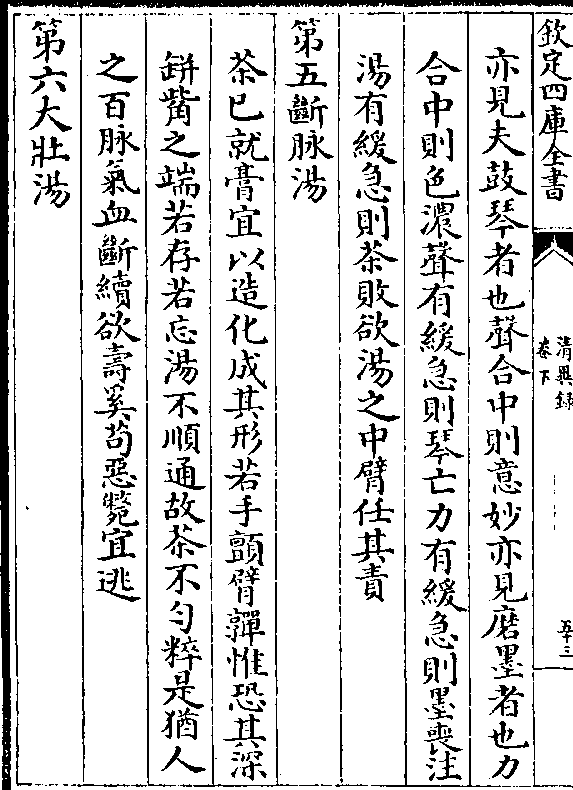 欽定四庫全書
清異錄
卷下
五十三
亦見夫鼓琴者也聲合中則意妙亦見磨墨者也力
合中則色濃聲有緩急則琴亡力有緩急則墨喪注
湯有緩急則茶敗欲湯之中臂任其責
第五斷脉湯
茶已就膏宜以造化成其形若手顫臂嚲惟恐其深
缾觜之端若存若忘湯不順通故茶不勻粹是猶人
之百脉氣血斷續欲壽奚茍惡斃宜逃
第六大壯湯